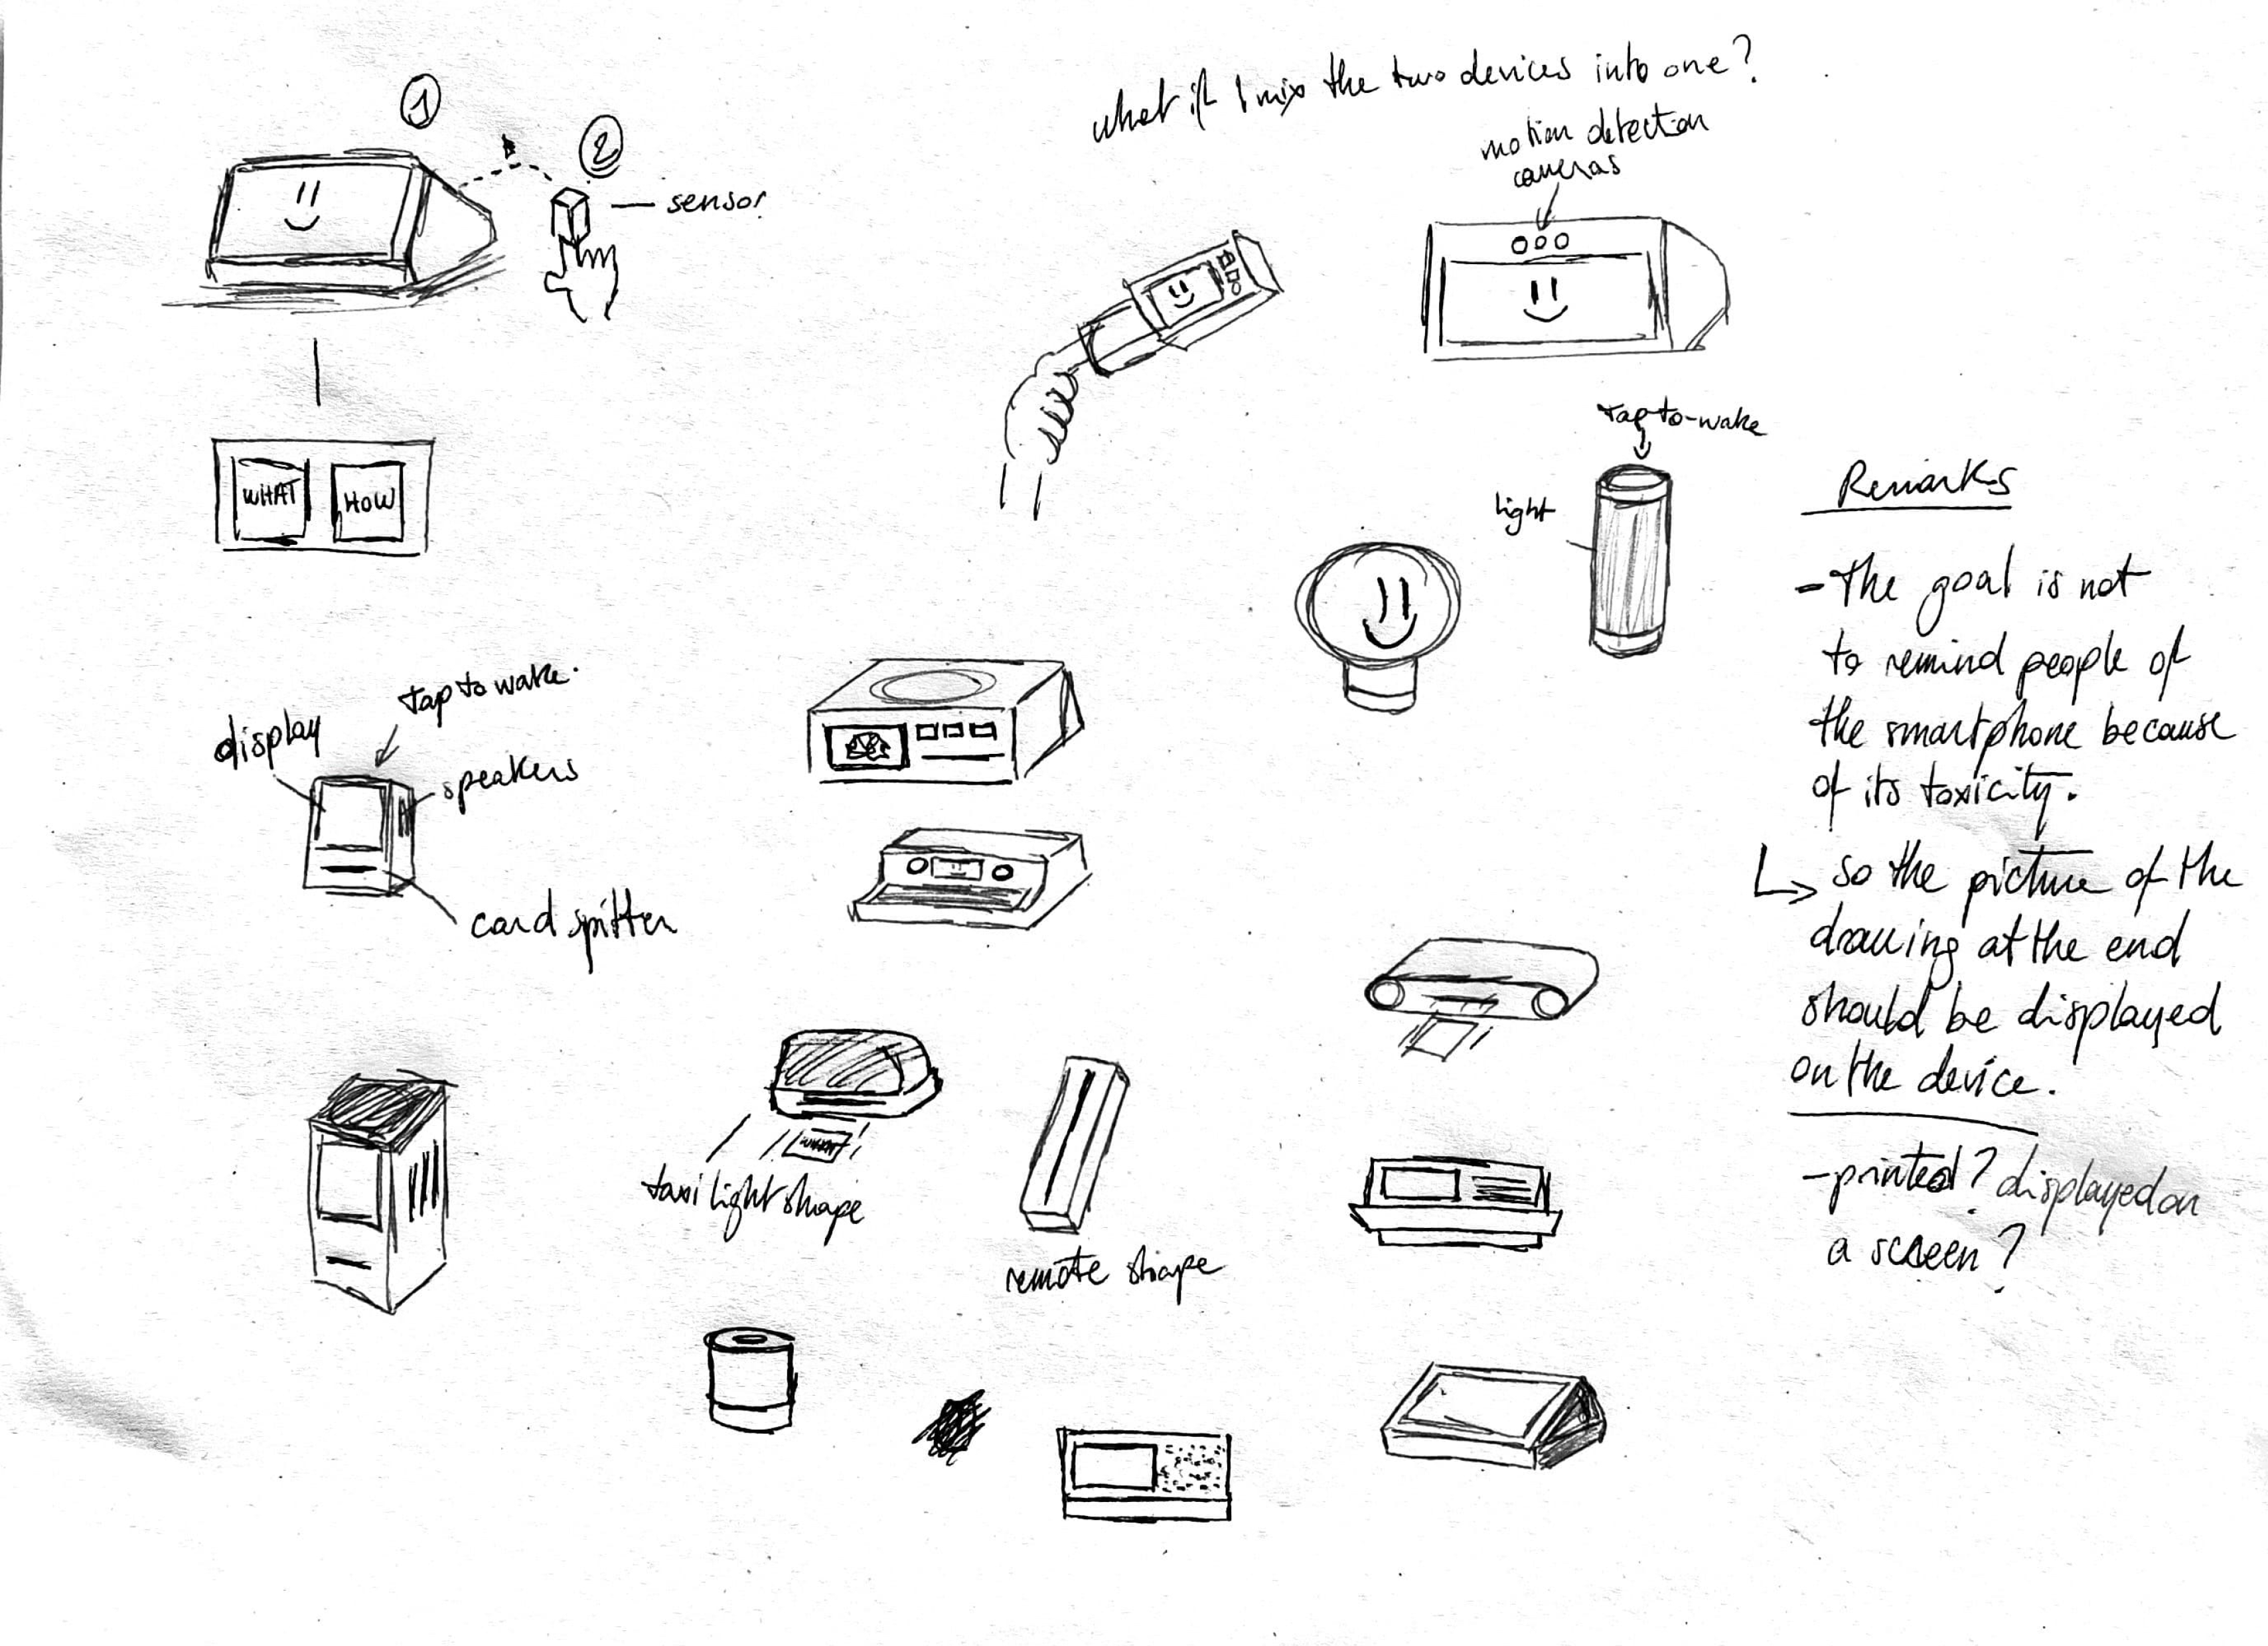 1
2
sensor
what if I mix the two devices into one?
motion detection
cameras
WHAT
HOW
tap-to-wake
light
display
tap to wake.
speakers
card spitter
taxi light shape
remote shape
Remarks
- The goal is not
to remind people of
the smartphone because
of its toxicity.
↳ so the picture of the
drawing at the end
should be displayed
on the device.
- printed? displayed on
a screen?